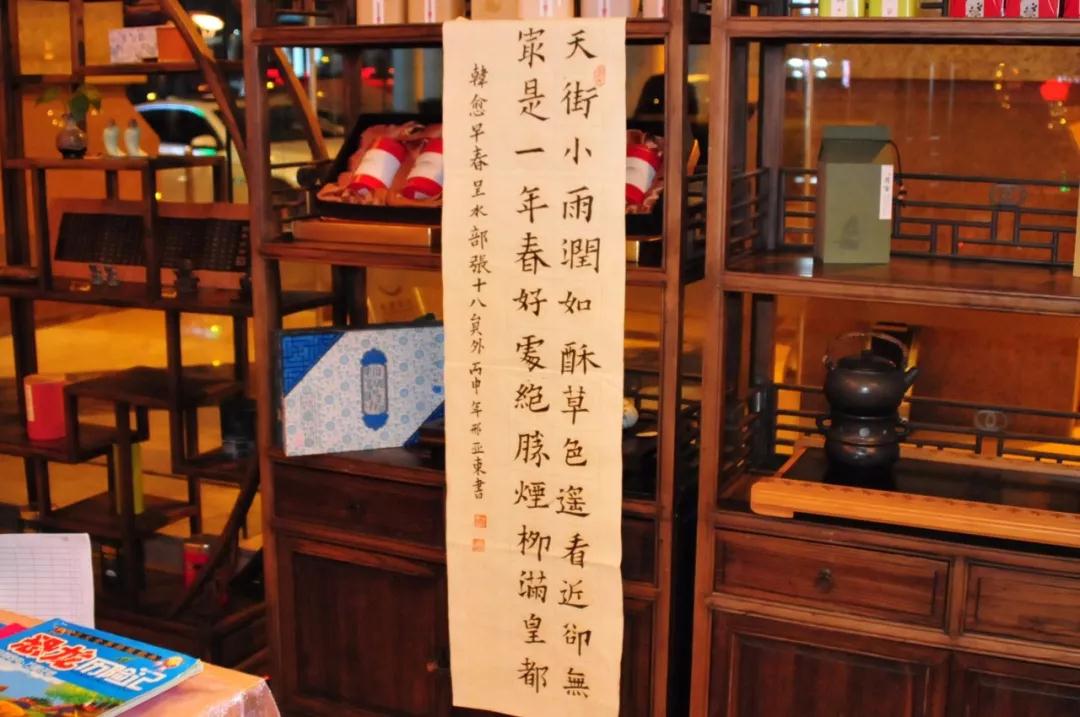 天街小雨潤如酥草色遥看近卻無
㝡是一年春好處絶勝煙柳滿皇都
韓愈早春呈水部張十八員外 丙申年邢亞東書
恐龙历险记